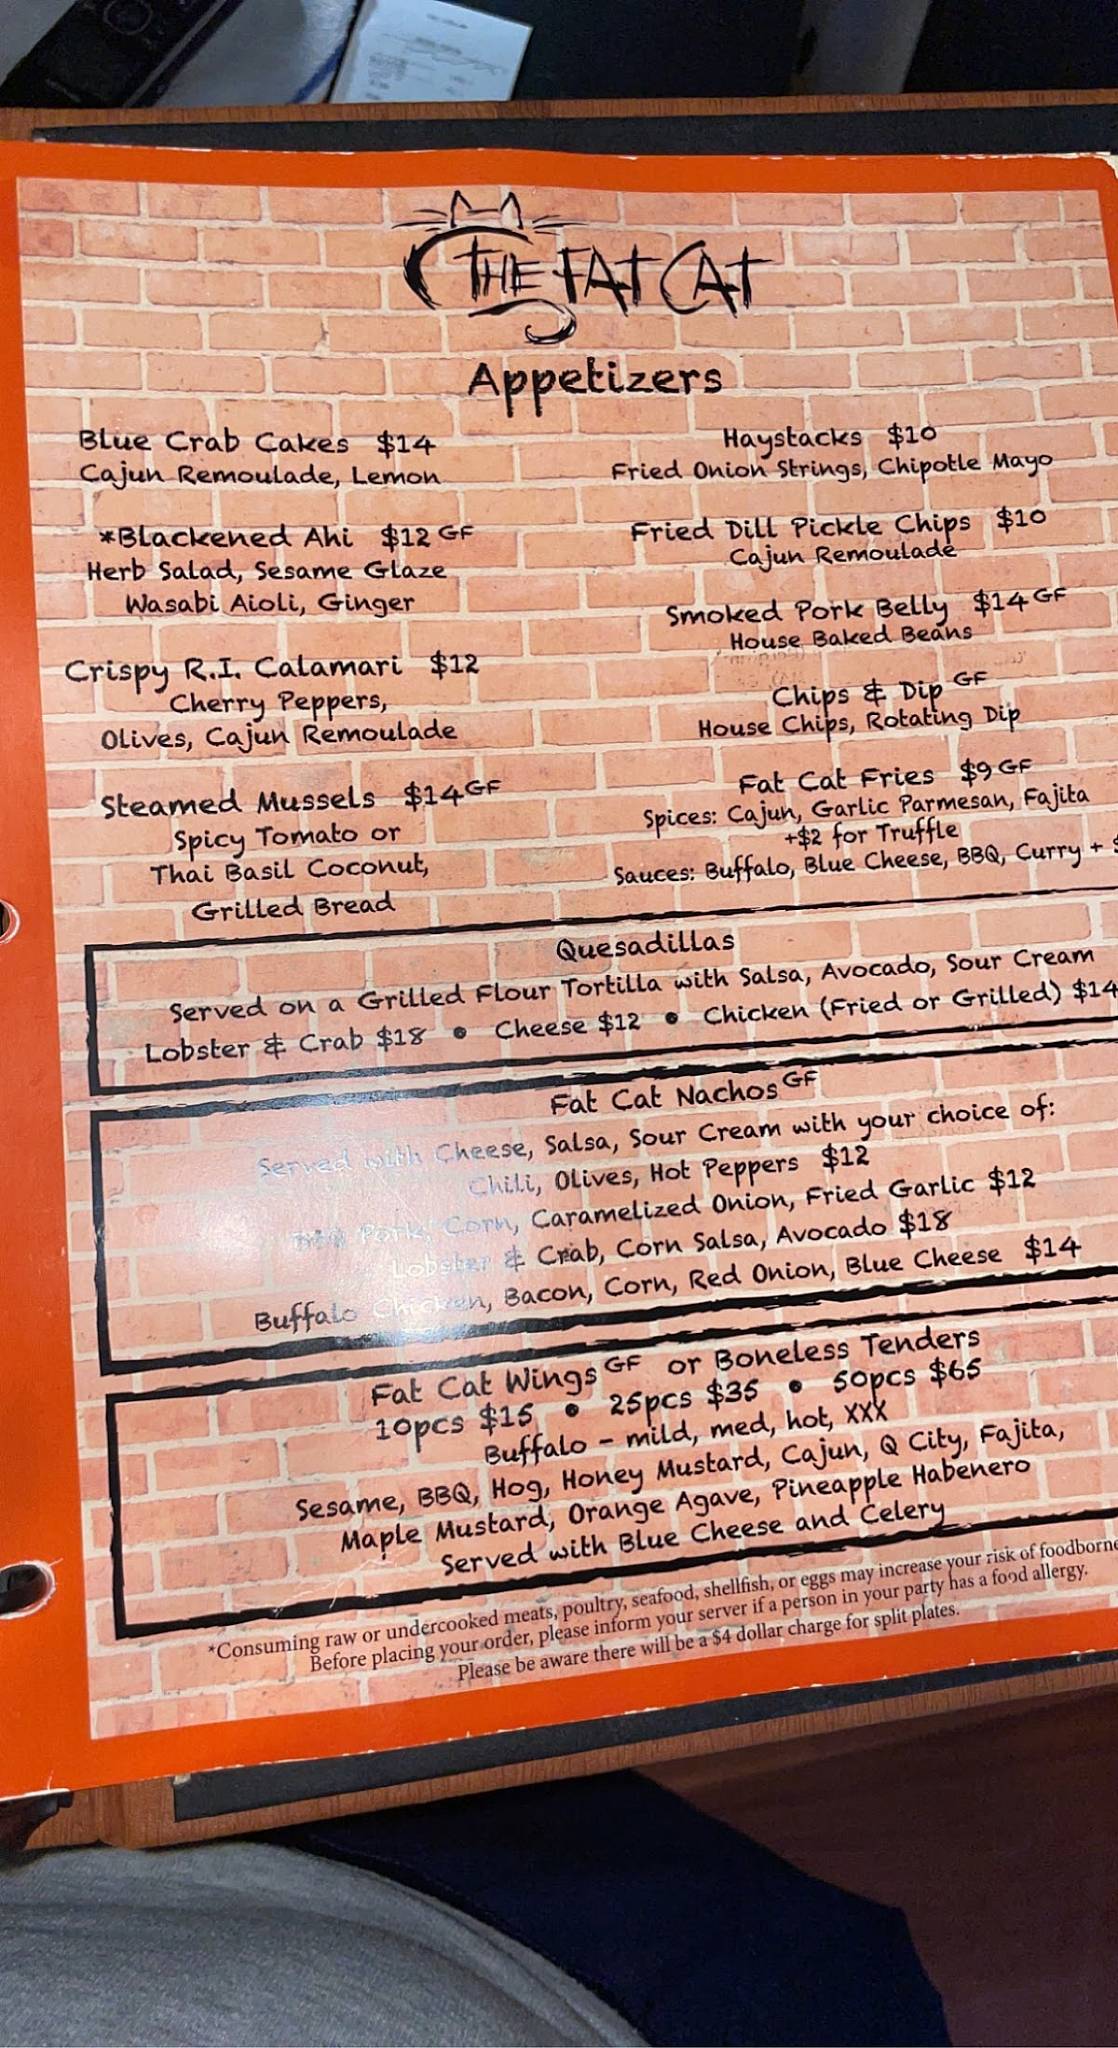 THE FAT CAT
Appetizers
Blue Crab Cakes $14
Cajun Remoulade, Lemon
*Blackened Ahi $12 GF
Herb Salad, Sesame Glaze
Wasabi Aioli, Ginger
Crispy R.I. Calamari $12
Cherry Peppers,
Olives, Cajun Remoulade
Steamed Mussels $14 GF
Spicy Tomato or
Thai Basil Coconut,
Grilled Bread
Haystacks $10
Fried Onion Strings, Chipotle Mayo
Fried Dill Pickle Chips $10
Cajun Remoulade
Smoked Pork Belly $14 GF
House Baked Beans
Chips & Dip GF
House Chips, Rotating Dip
Fat Cat Fries $9 GF
Spices: Cajun, Garlic Parmesan, Fajita
+$2 for Truffle
Sauces: Buffalo, Blue Cheese, BBQ, Curry + $
Quesadillas
Served on a Grilled Flour Tortilla with Salsa, Avocado, Sour Cream
Lobster & Crab $18 • Cheese $12 • Chicken (Fried or Grilled) $14
Fat Cat Nachos GF
Served with Cheese, Salsa, Sour Cream with your choice of:
Chili, Olives, Hot Peppers $12
Pork, Corn, Caramelized Onion, Fried Garlic $12
Lobster & Crab, Corn Salsa, Avocado $18
Buffalo Chicken, Bacon, Corn, Red Onion, Blue Cheese $14
Fat Cat Wings GF or Boneless Tenders
10pcs $15 • 25pcs $35 • 50pcs $65
Buffalo - mild, med, hot, XXX
Sesame, BBQ, Hog, Honey Mustard, Cajun, Q City, Fajita,
Maple Mustard, Orange Agave, Pineapple Habenero
Served with Blue Cheese and Celery
*Consuming raw or undercooked meats, poultry, seafood, shellfish, or eggs may increase your risk of foodborne
Before placing your order, please inform your server if a person in your party has a food allergy.
Please be aware there will be a $4 dollar charge for split plates.